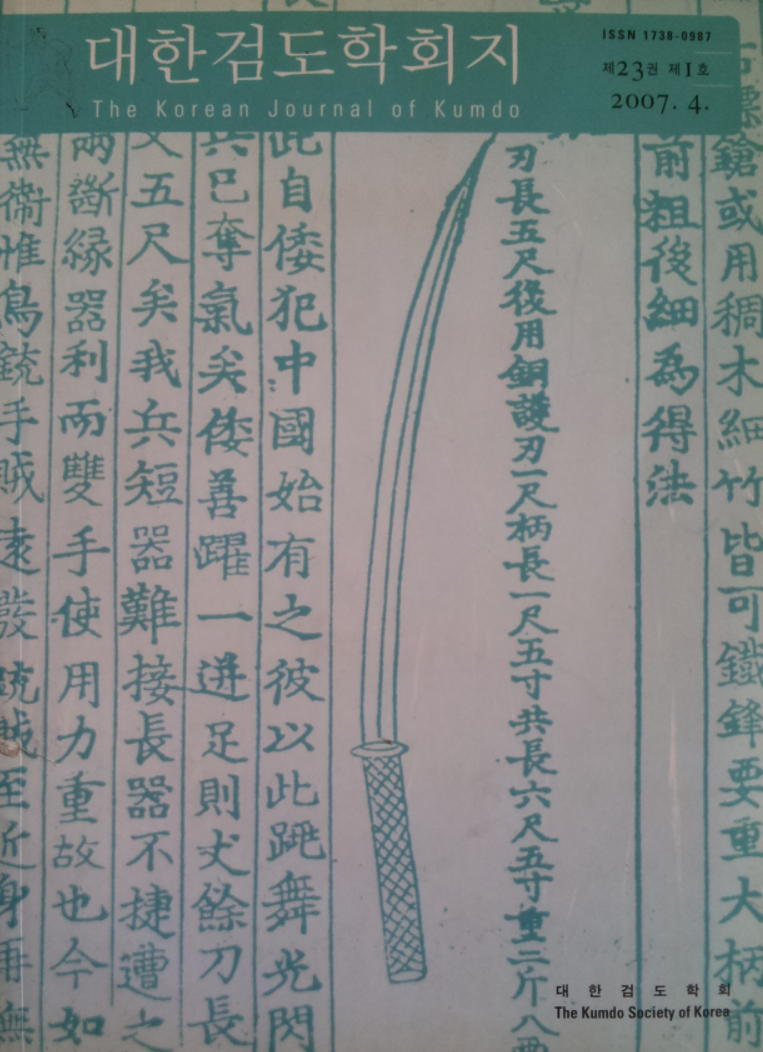 대한검도학회지
The Korean Journal of Kumdo
ISSN 1738-0987
제23권 제1호
2007. 4.
標鎗或用稠木細竹皆可鐵鋒要重大柄前
前粗後細為得法
刃長五尺後用銅護刃一尺柄長一尺五寸共長六尺五寸重二斤八兩
此自倭犯中國始有之彼以此跳舞光閃
兵已奪氣矣倭善躍一迸足則丈餘刀長
丈五尺矣我兵短器難接長器不捷遭之
兩斷緣器利而雙手使用力重故也今如
無衞惟鳥銃手賊遠發銃賊至近身再無
대한검도학회
The Kumdo Society of Korea